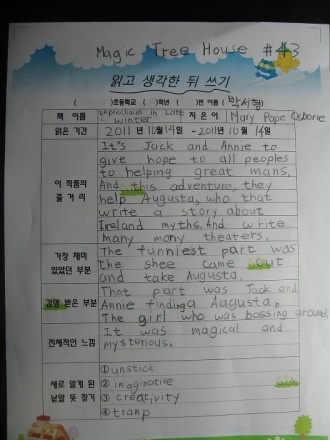 Magic Tree House #43
읽고 생각한 뒤 쓰기
( )초등학교 ( )학년 ( )반 이름 (박시형)
책 이름 Leprechaun in Late Winter 지은이 Mary Pope Osborne
읽은 기간 2011년 10월 14일 - 2011년 10월 14일
이 작품의 줄거리
It's Jack and Annie to
give hope to all peoples
to helping great mans,
And this adventure, they
help Augusta, who that
write a story about
Ireland myths. And write
many many theaters,
가장 재미있었던 부분
The funniest part was
the shee came out
and take Augusta.
감명 받은 부분
That part was Jack and
Annie finding a Augusta.
The girl who was bossing around.
전체적인 느낌
It was magical and
mysterious.
새로 알게 된 낱말 뜻 찾기
① unstick
② imaginative
③ creativity
④ tramp